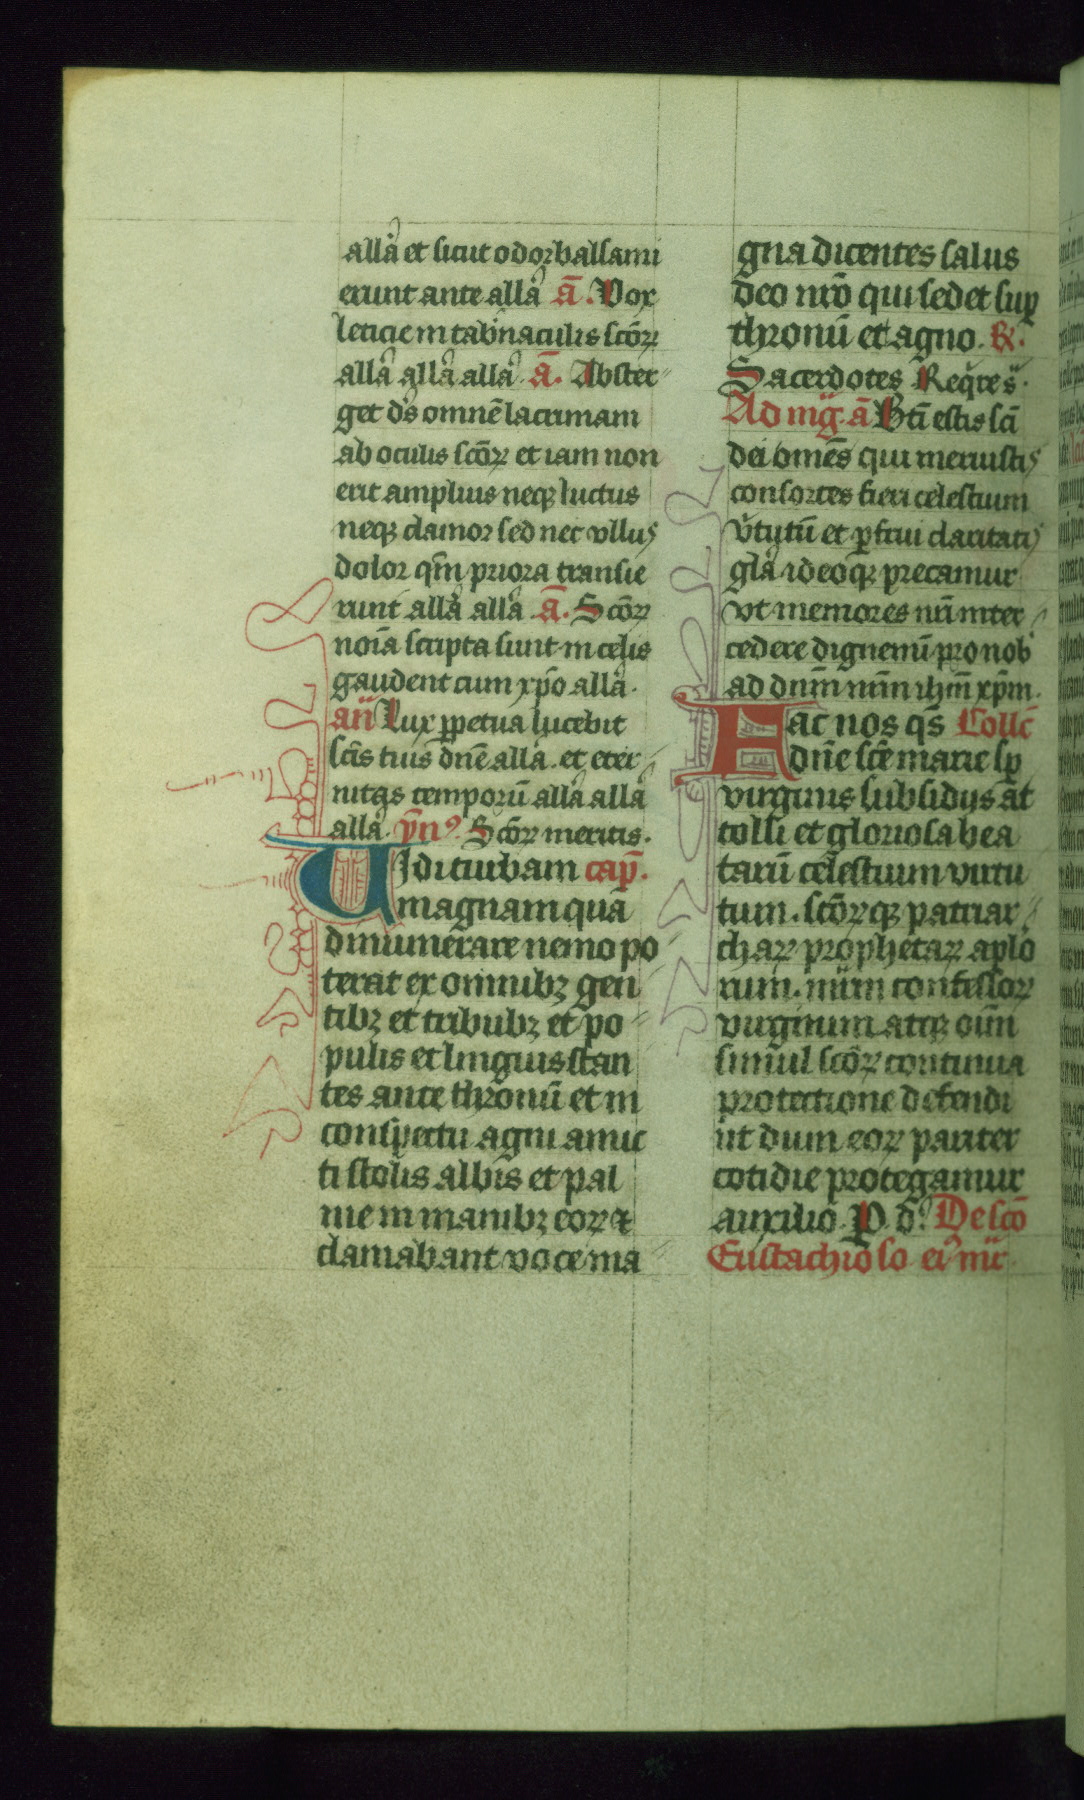 allā et sicut odor balsami
erunt ante allā ā. Vox
leticie in tabn̄aculis scōꝝ
allā allā allā ā. Abster
get ds̄ omnē lacrimam
ab oculis scōꝝ et iam non
erit amplius neqꝫ luctus
neqꝫ clamor sed nec vllus
dolor qm̄ priora transie
runt allā allā ā. Scōꝝ
noīa scripta sunt in celis
gaudent cum xp̄o allā.
an̄ Lux ꝑpetua lucebit
scīs tuis dn̄e allā. et eter
nitas temporū allā allā
allā. pn̄ꝰ Scōꝝ meritis.
Uidi turbam cap̄.
magnam quā
dinumerare nemo po
terat ex omnibꝫ gen
tibꝫ et tribubꝫ et po
pulis et linguis stan
tes ante thronū et in
conspectu agni amic
ti stolis albis et pal
me in manibꝫ eoꝝ ⁊
clamabant voce ma
gna dicentes salus
deo nrō qui sedet suꝑ
thronū et agno. R.
Sacerdotes Reqͥre s
Ad mḡ. ā Bti̅ estis sci̅
dei omēs qui meruistis
consortes fieri celestium
v̄tutū et ꝑfrui claritatis
glā. ideoqꝫ precamur
vt memores nr̄i inter
cedere dignemī pro nob̄
ad dn̄m nr̄m ihm̄ xp̄m.
Hac nos qs̄ Coll̄c
dn̄e scē marie sꝑ
virginis subsidijs at
tolli et gloriosa bea
tarū celestium virtu
tum. scōꝝqꝫ patriar
chaꝝ prophetaꝝ aplō
rum. mr̄m confessoꝝ
virginum atqꝫ oīm
simul scōꝝ continua
protectione defendi
ut dum eoꝝ pariter
cotidie protegamur
auxilio. P. d. De scō
Eustachio so eiꝰ mr̄